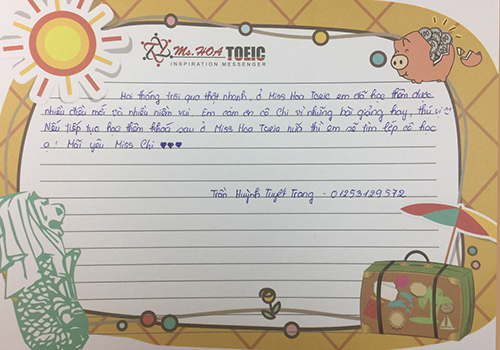 Ms.HOA TOEIC
INSPIRATION MESSENGER
Hai tháng trôi qua thật nhanh, ở Miss Hoa Toeic em đã học thêm được
nhiều điều mới và nhiều niềm vui. Em cảm ơn cô Chi vì những bài giảng hay, thú vị
Nếu tiếp tục học thêm khoá sau ở Miss Hoa Toeic nữa thì em sẽ tìm lớp cô học
ạ! Mãi yêu Miss Chi ♥♥♥
Trần Huỳnh Tuyết Trang - 01253129572